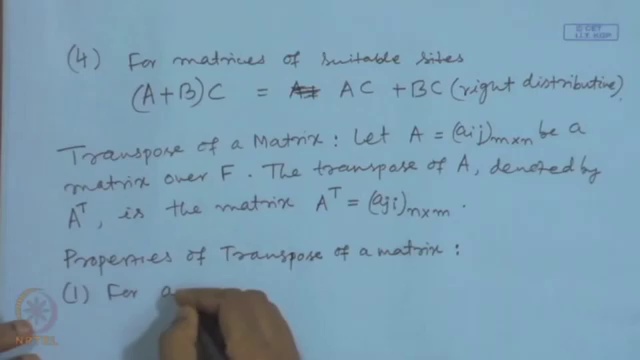 (4) For matrices of suitable sites
(A+B)C = AC + BC (right distributive)
Transpose of a Matrix: Let A = (aij)m×n be a
matrix over F. The transpose of A, denoted by
A^T, is the matrix A^T = (aji)n×m.
Properties of Transpose of a matrix:
(1) For a
NPTEL